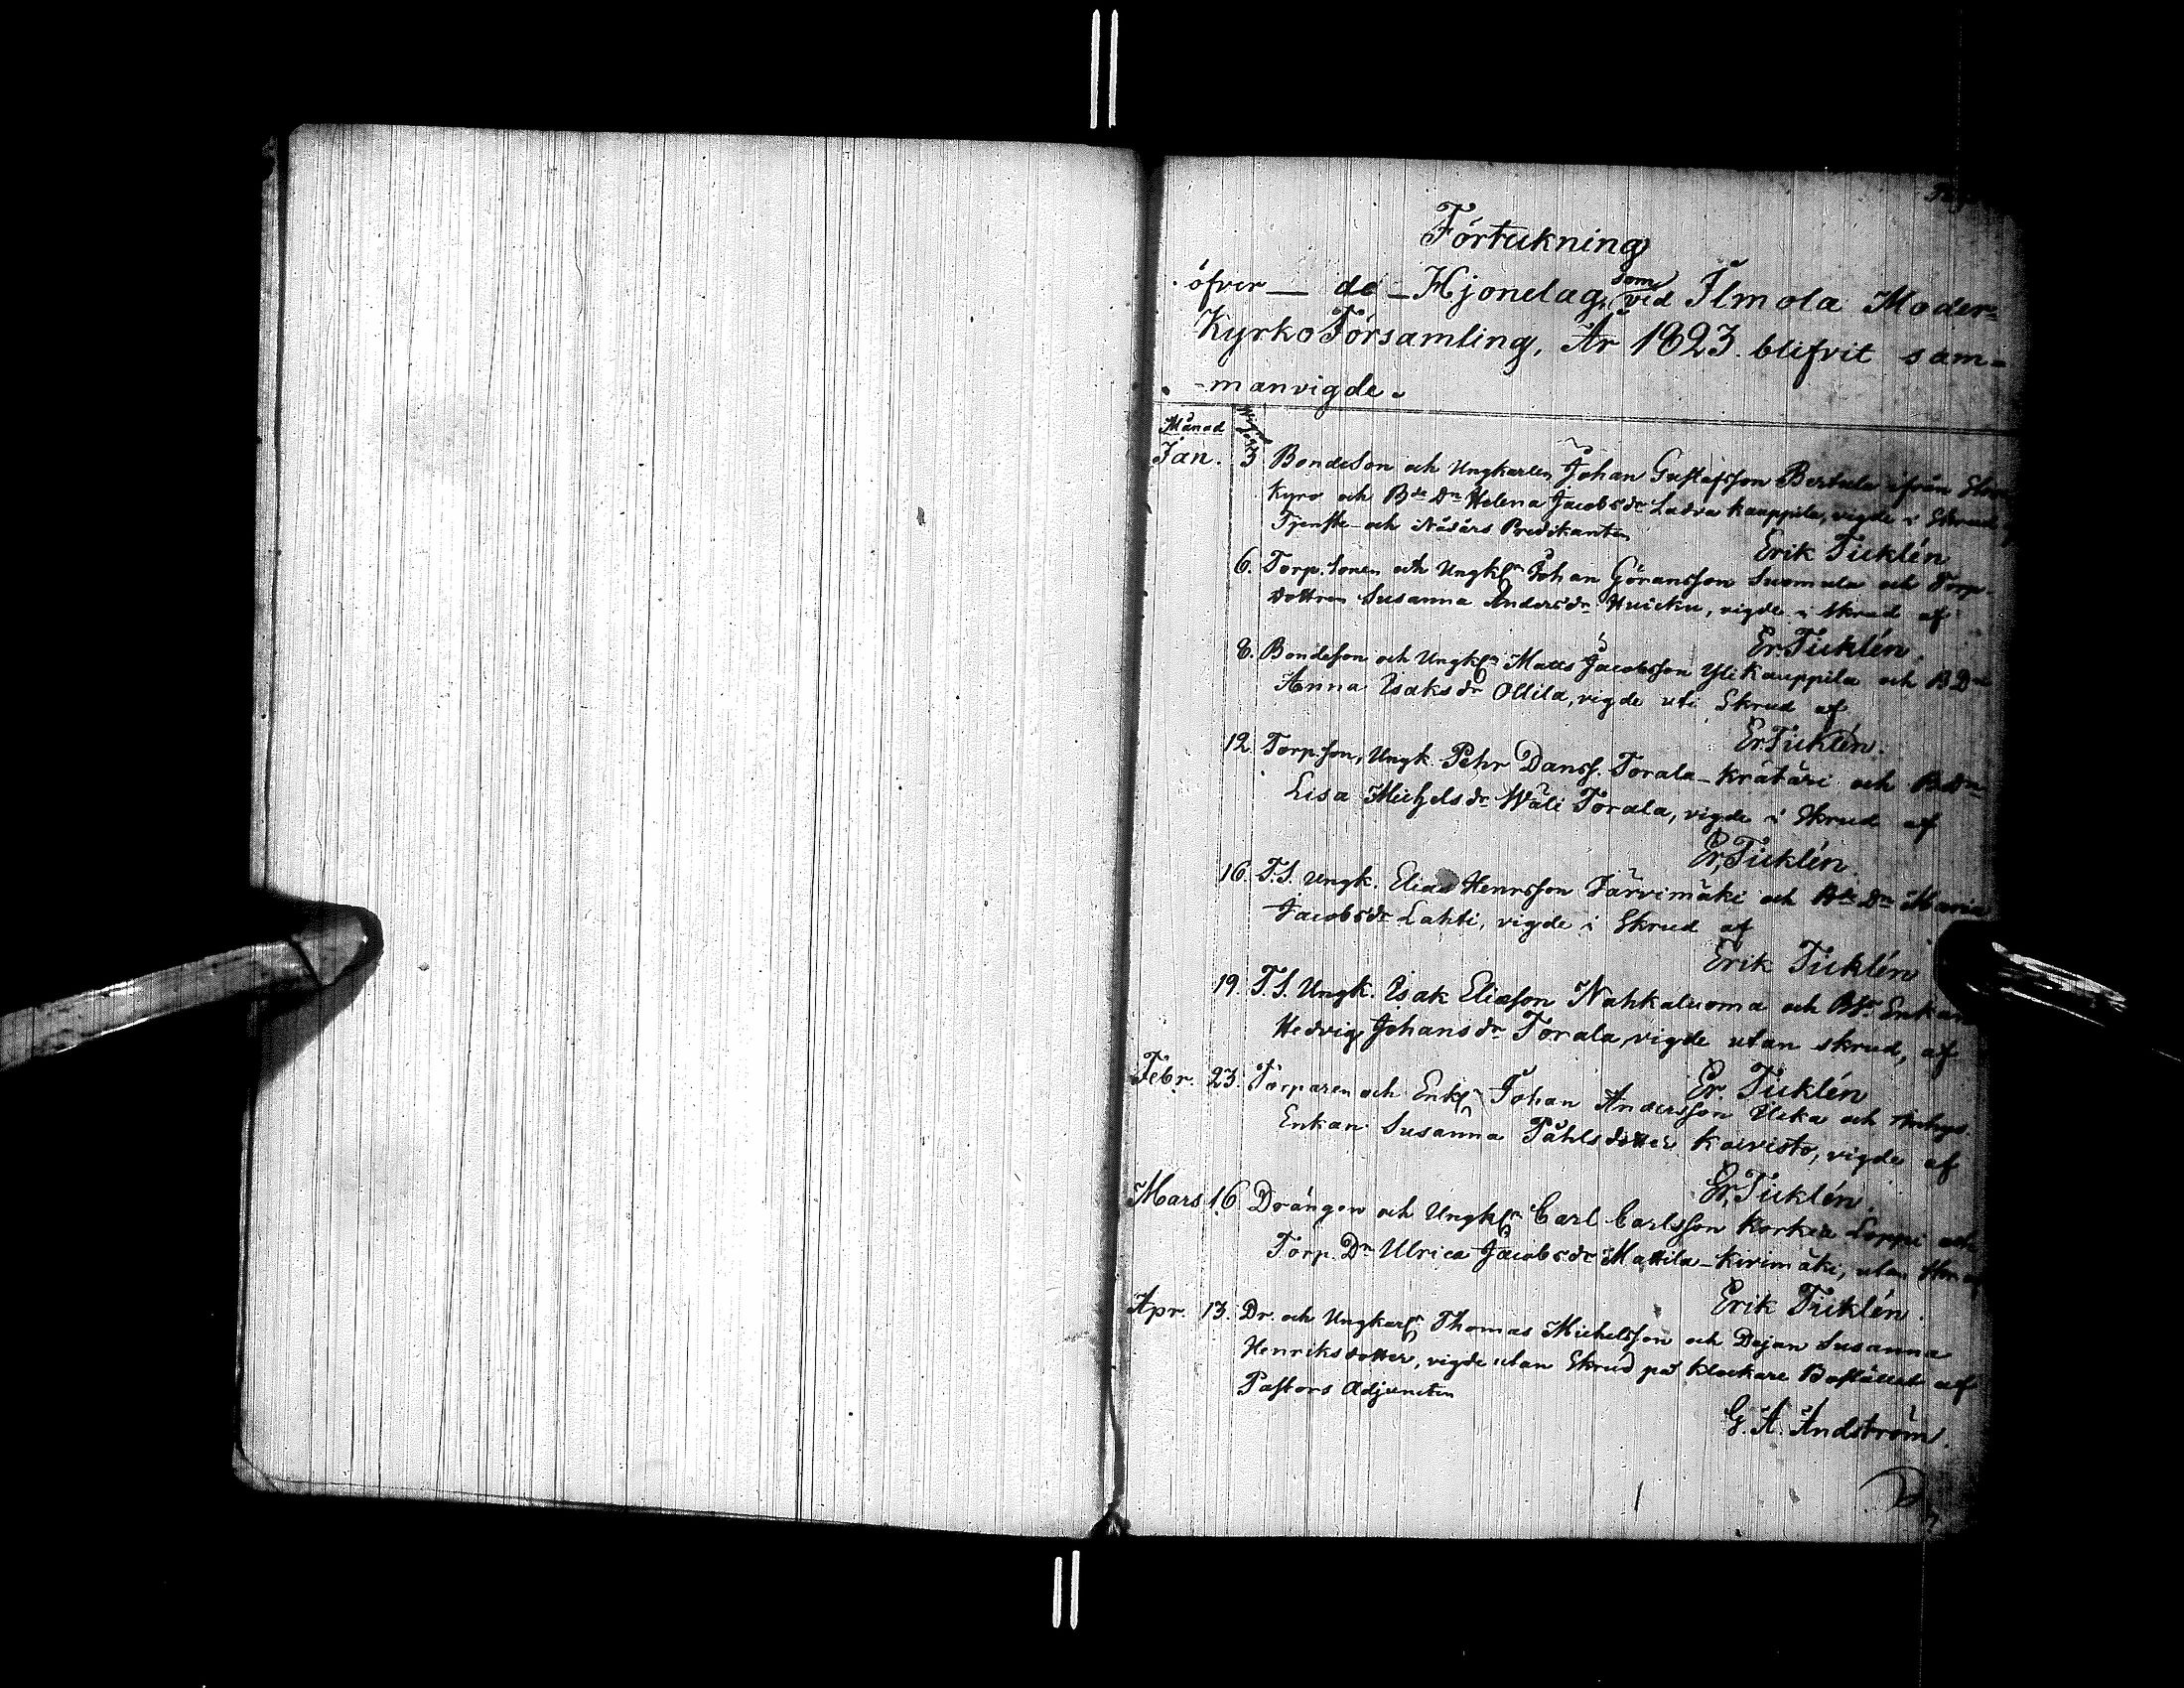 Förtekning
öfver de Hjonelag, som vid Ilmola Moder-
Kyrko Församling, År 1823. blifvit sam-
-manvigde.
Månad
Jan. 3 Bondeson och Ungkarlen Johan Gustafsson Bertula ifrån Stor
Kyro och Bde Dn Helena Jacobsdr Ladva Kauppila, vigde i Skrud
Tjenste- och Nådårs Predikanten
Erik Ticklén
6. Torp. Sonen och Ungkln Johan Göransson Suomela och Torp.
dottren Susanna Andersdr Huicku, vigde i skrud af
Er Ticklén.
8. Bondeson och Ungkln Matts Jacobsson Yli Kauppila och B Dn
Anna Isaksdr Ollila, vigde uti Skrud af
Er Ticklén.
12. Torpson, Ungk. Pehr Danss. Torala-Krätäri och Bdn
Lisa Michelsdr Wäli Torala, vigde i Skrud af
Er, Ticklén.
16. T.S. Ungk. Elias Henrsson Järvimäki och Dn Maria
Jacobsdr Lahti, vigde i Skrud af
Erik Ticklén
19. T.S. Ungk. Isak Eliason Nahkaluoma och Enkan
Hedvig Johansdr Torala, vigde utan skrud, af
Er. Ticklén
Febr. 23. Torparen och Enkl Johan Andersson och
Enkan Susanna Påhlsdotter Koivisto, vigde af
Er, Ticklén.
Mars 16 Drängen och Ungkln Carl Carlsson Korkea Loppi och
Torp. Dn Ulrica Jacobsdr Mattila-Kivimäki, utan
Erik Ticklén.
Apr. 13. Dr. och Ungkarln Thomas Michelsson och Dejan Susanna
Henriksdotter, vigde utan Skrud på Klockare Bostället af
Pastors Adjuncten
G. A. Andström.